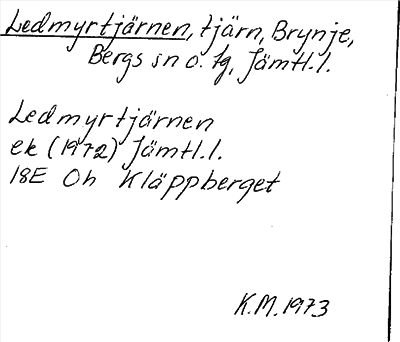 Ledmyrtjärnen, tjärn, Brynje,
Bergs sn o. tg, Jämtl.l.
Ledmyrtjärnen
ek (1972) Jämtl.l.
18E 0h Kläppberget
K.M. 1973